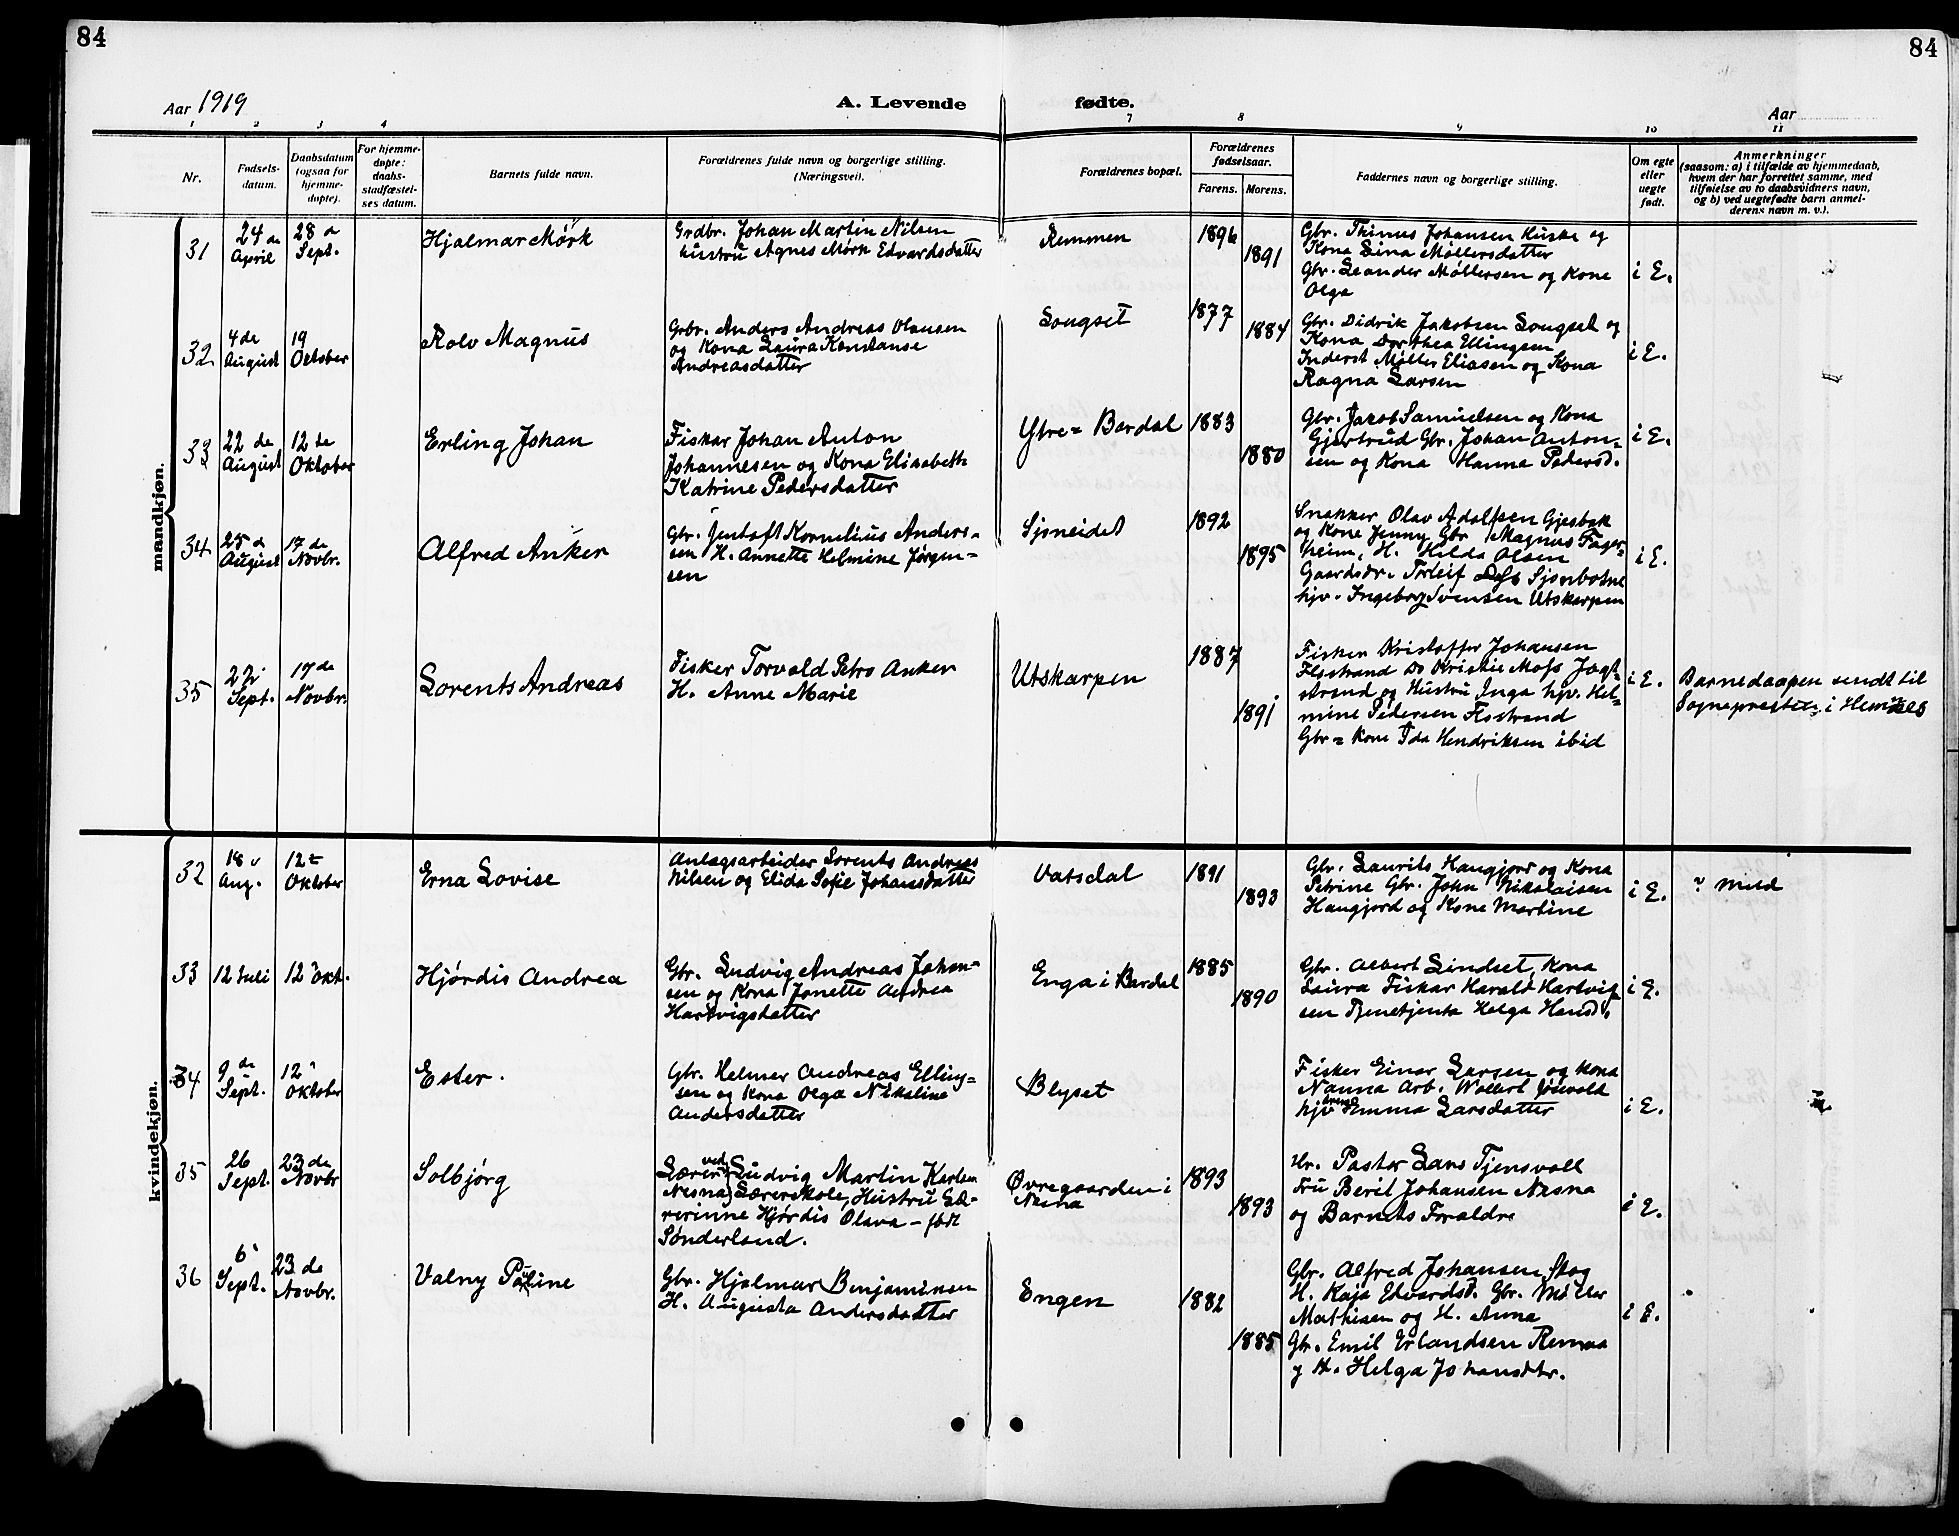 84
84
Aar 1919
A. Levende
fødte.
Aar
1 2 3 4 7 8 9 10 11
Nr.
Fødsels-
datum.
Daabsdatum
(ogsaa for
hjemme-
døpte).
For hjemme-
døpte:
daabs-
stadfæstel-
ses datum.
Barnets fulde navn.
Forældrenes fulde navn og borgerlige stilling.
(Næringsvei).
Forældrenes bopæl.
Forældrenes
fødselsaar.
Farens. Morens.
Faddernes navn og borgerlige stilling.
Om egte
eller
uegte
født.
Anmerkninger
(saasom: a) i tilfælde av hjemmedaab,
hvem der har forrettet samme, med
tilføielse av to daabsvidners navn,
og b) ved uegtefødte barn anmel-
derens navn m. v.).
mandkjøn.
31
24 de
April
28 d
Sept.
Hjalmar Mörk
Grdbr. Johan Martin Nilsen
hustru Agnes Mörk Edvardsdatter
Remmen
1896
1891
Gbr. Thinus Johansen Huske og
Kona Lina Møllersdatter
Gbr. Leander Møllersen og Kone
Olga
i E.
32
4 de
August
19
October
Rolv Magnus
Grbr. Anders Andreas Olausen
og Kona Laura Konstanse
Andreasdatter
Songset
1877
1884
Gbr. Didrik Jakobsen Songset og
Kona Dorthea Ellingsen
Inderst Møller Eliasen og Kona
Ragna Larsen
i E.
33
22 de
August
12 te
Oktober
Erling Johan
Fisker Johan Anton
Johannesen og Kona Elisabeth
Katrine Pedersdatter
Ytre= Bardal
1883
1880
Gbr. Jakob Samuelsen og Kona
Gjertrud Gbr. Johan Anton-
sen og Kona Hanna Pedersd.
i E.
34
25 d
August
17 de
Novbr.
Alfred Anker
Gbr. Jentoft Kornelius Anders-
sen H. Annette Helmine Jörgen-
sen
Sjoneidet
1892
1895
Snekker Olav Adolfsen Gjesbak
og Kone Jenny Gbr Magnus Fager-
heim, H. Hilda Olsen
Gaardsdr. Torleif Sjonbotne
hjv. Ingeborg Svensen Utskarpen
i E.
35
22
Sept.
17 de
Novbr.
Lorents Andreas
Fisker Torvald Petro Anker
H. Anne Marie
Utskarpen
1887
1891
Fisker Kristoffer Johansen
Flostrand Do Kristie Mofs Jagt-
strand og Hustru Inga hjv. Hel-
mine Pedersen Flostrand
Gbr= Kone Ida Hendriksen ibid
i E.
Barnedaapen sendt til
Sognepresten i Hemnes
kvindekjøn.
32
18
Aug.
12 te
Oktober
Erna Lovise
Anlægsarbeider Lorents Andreas
Nilsen og Elida Sofie Johansdatter
Vatsdal
1891
1893
Gbr. Laurits Haugjord og Kona
Petrine Gbr. John Nikolaisen
Haugjord og Kone Martine
i E.
meld
33
12 Juli
12 Okt.
Hjördis Andrea
Gbr. Ludvig Andreas Johan-
sen og Kona Jonette Andrea
Hartvigsdatter
Enga i Bardal
1885
1890
Gbr. Albert Lindset, Kona
Laura Fisker Harald Hartvig-
sen Tjenestjenta Helga Hansd.
i E.
34
9 de
Sept.
12
Oktober
Ester.
Gbr. Helmer Andreas Elling-
sen og Kona Olga Nikoline
Andersdatter
Blyset
Fisker Einar Larsen og Kona
Nanna Arb. Wollert
hjv Emma Larsdatter
i E.
35
26
Sept.
23 de
Novbr
Solbjörg
Lærer ved Ludvig Martin Karlsen
Nesna Lærerskole, Hustru Læ-
rerinne Hjördis Olava - født
Sönderland.
Övregaarden i
Nesna
1893
1893
Hr. Pastor Lars Tjensvoll
Fru Beril Johansen Nesna
og Barnets Foraldre
i E.
36
6
Sept.
23 de
Novbr.
Valny Pauline
Gbr. Hjalmar Benjaminsen
H. Augusta Andersdatter
Engen
1882
1885
Gbr. Alfred Johansen Skog
H. Kaja Edvardsd. Gbr. Möller
Mathisen og H. Anna
Gbr. Emil Erlandsen Remmaa
og H. Helga Johansdtr.
i E.